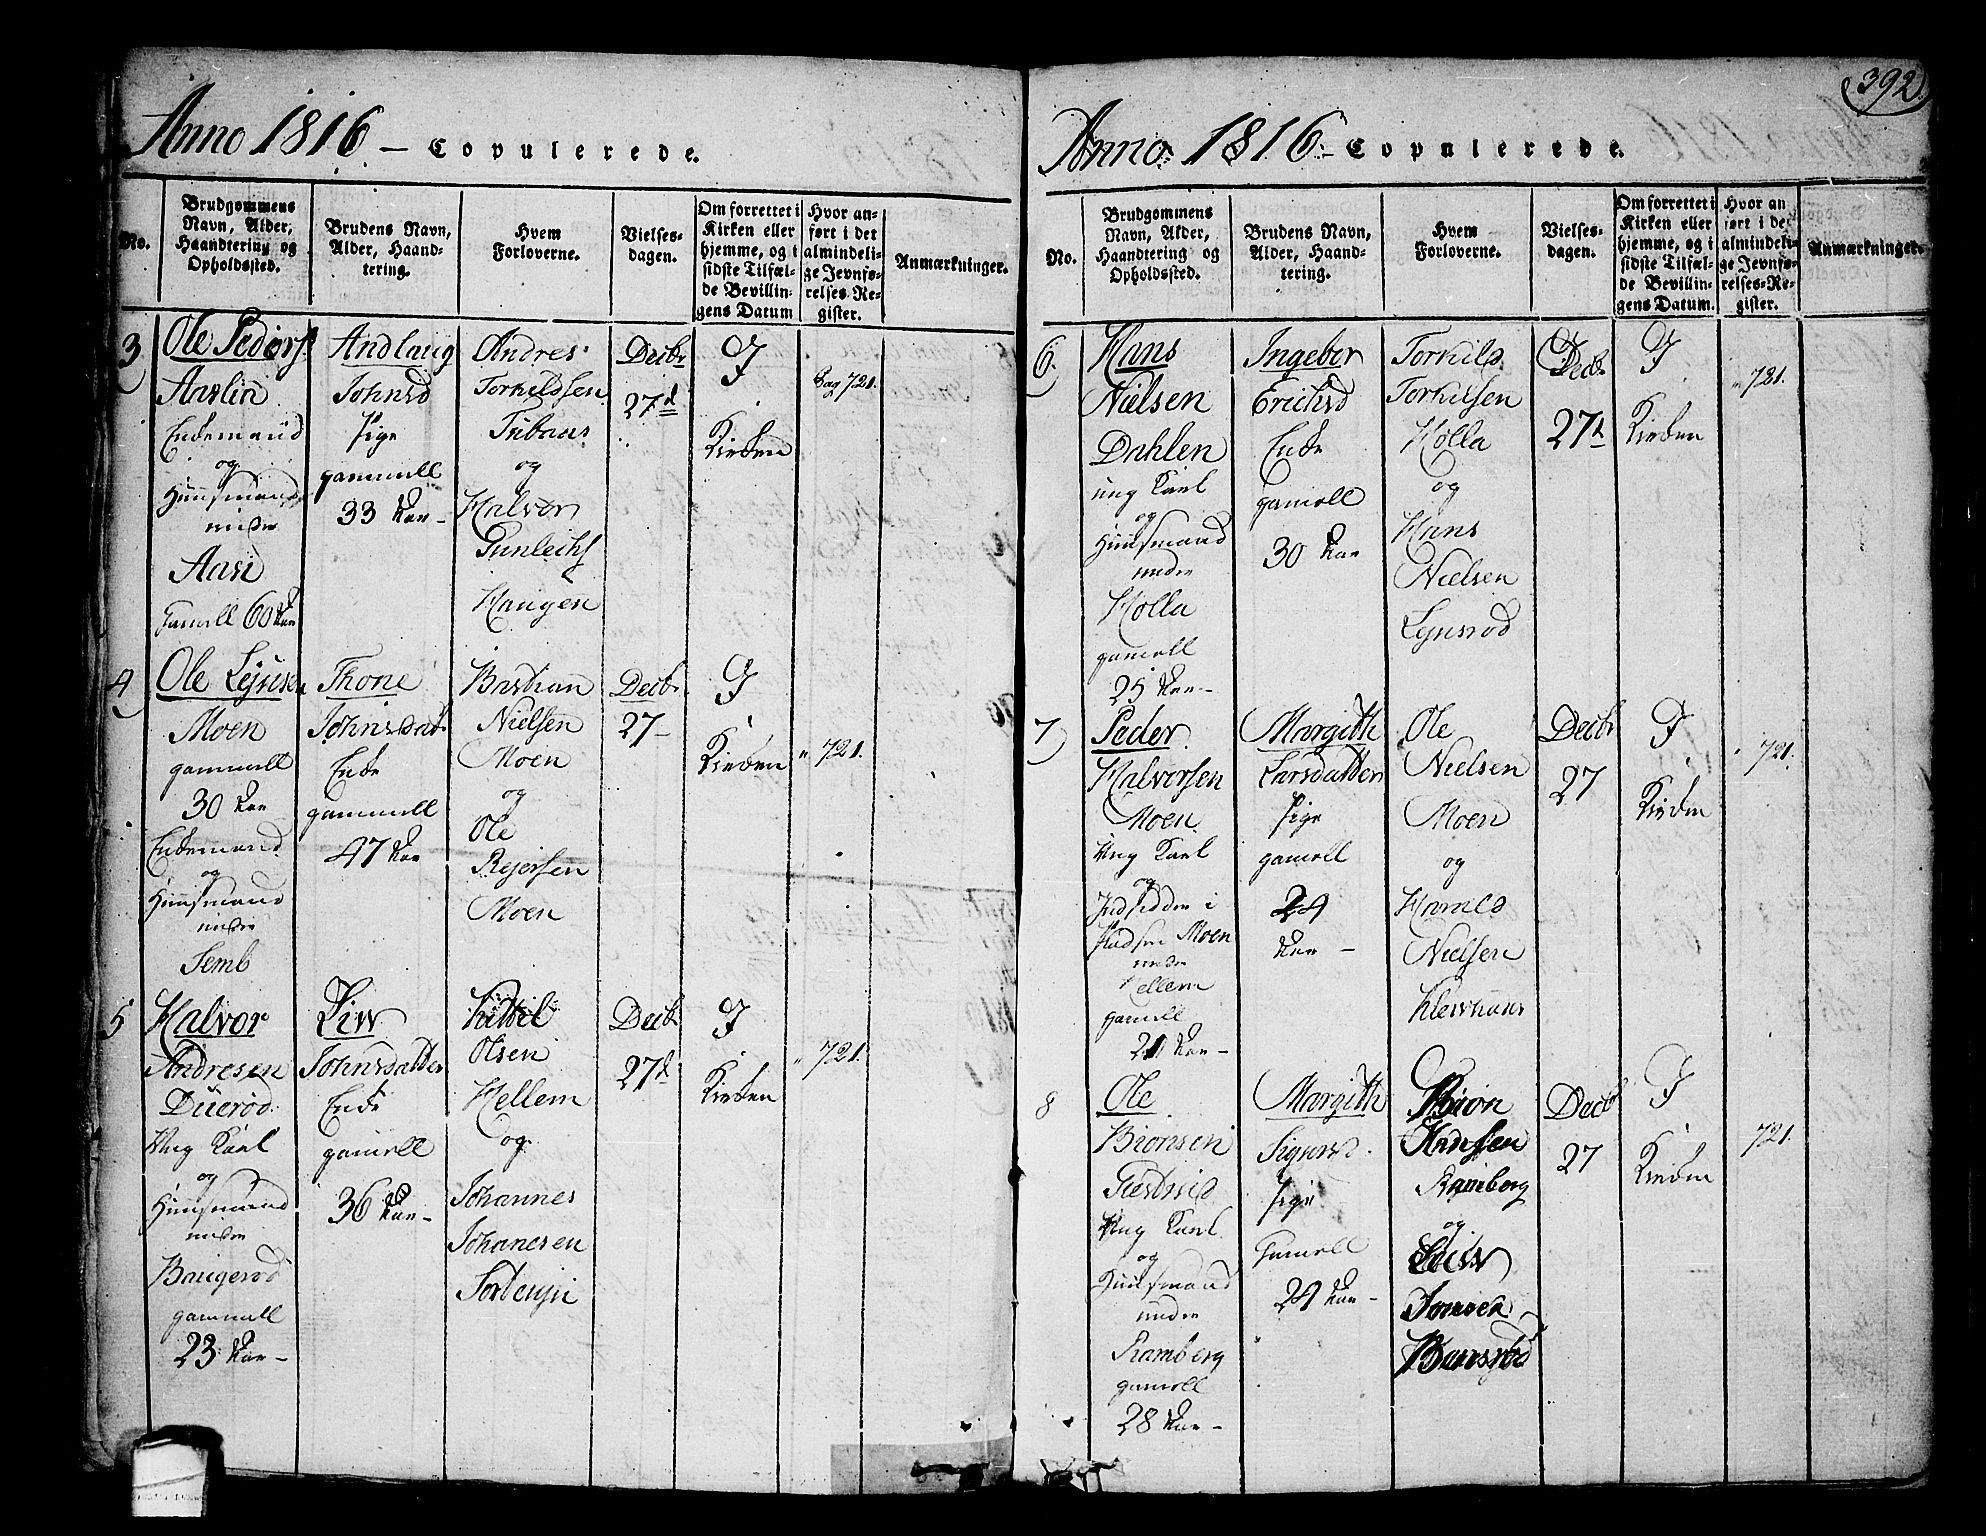 392.
Anno 1816 – Copulerede.
No.
Brudgommens
Navn, Alder,
Haandtering og
Opholdssted.
Brudens Navn,
Alder, Haand-
tering.
Hvem
Forloverne.
Vielses-
dagen.
Om forrettet i
Kirken eller
hjemme, og i
sidste Tilfæl-
de Bevillin-
gens Datum
Hvor an-
ført i det
almindeli-
ge Jevnfø-
relses-Re-
gister.
Anmærkninger.
3
Ole Peders.
Aaslin
Enkemand
og
Huusmand
under
Aase
Gamell 60 Aar
Andlaug
Johnsd
Pige
gammell
33 Aar –
Andres
Torkildssen
og
Halvor
Gunlechs
Haugen
Decbr
27d
I
Kirken
Pag 721.
4
Ole Lejusen
Moen
gammell
30 Aar
Enkemand
og
Huusmand
under
Semb
Thone
Johnsdat
Enke
gammell
47 Aar
Bastian
Nielsen
Moen
og
Ole
Rejersen
Moen
Decbr
27–
I
Kirken
" 721.
5
Halvor
Andresen
Duerød
Ung Karl
og
Huusmand
under
Baugerød
gammell
23 Aar –
Liv
Johnsdatter
Enke
gamell
36 Aar –
Kittil
Olsen
Hellem
og
Johannes
Johanesen
Decbr
27d
I
Kirken
" 721.
Anno 1816. Copulerede.
No.
Brudgommens
Navn, Alder,
Haandtering og
Opholdssted.
Brudens Navn,
Alder, Haand-
tering.
Hvem
Forloverne.
Vielses-
dagen.
Om forrettet i
Kirken eller
hjemme, og i
sidste Tilfæl-
de Bevillin-
gens Datum.
Hvor an
ført i de
almindeli-
ge Jevnfø-
relses-Re-
gister.
Anmærkninger.
6
Hans
Nielsen
Dahlen
ung Karl
og
Huusmand
under
Holla
gamell
25 Aar –
Ingebor
Erichsd
Enke
gamell
30 Aar
Torkild
Torkilsen
Holla
og
Hans
Nielsen
Lejnsrød
Decbr
27d
I
Kirken
" 721.
7
Peder
Halvorsen
Moen
Ung Karl
og
Indsidder i
Pladsen Moen
under
Hellem
gamell
21 Aar –
Margith
Larsdatter
Pige
gamell
24
Aar –
Ole
Nielsen
Moen
og
Harrald
Nielsen
Decbr
27
I
Kirken
" 721.
8
Ole
Biønsen
Ung Karl
og
Huusmand
under
Ramberg
gamell
28 Aar –
Margith
Sigursd.
Pige
Gamell
24 Aar –
Biøn
Hansen
Ramberg
og
Bunsrød
Decbr
27
I
Kirken
721.